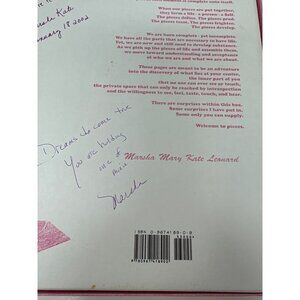 Kate
January 18 2002
When our pieces are put together,
they form a life - a person -
The pieces define. The pieces
The pieces The pieces frighten.
The pieces develop.
We are born complete - yet incomplete.
We have all the parts that are necessary to have life.
Yet, we are new and still need to develop substance.
As we pick up the pieces of life and assemble them,
we move toward understanding and acceptance
of who we are and what we are about.
These pages are meant to be an adventure
into the discovery of what lies at your center,
the inner part of you
that no one can ever see or touch,
the private space that can only be reached by introspection
and the willingness to see, feel, taste, touch, and hear.
There are surprises within this box.
Some surprises I have put in.
Some only you can supply.
Welcome to pieces.
Dreams do come true
You are holding
one of
mine
Marsha
Marsha Mary Kate Leonard
ISBN 0-9674189-0-8